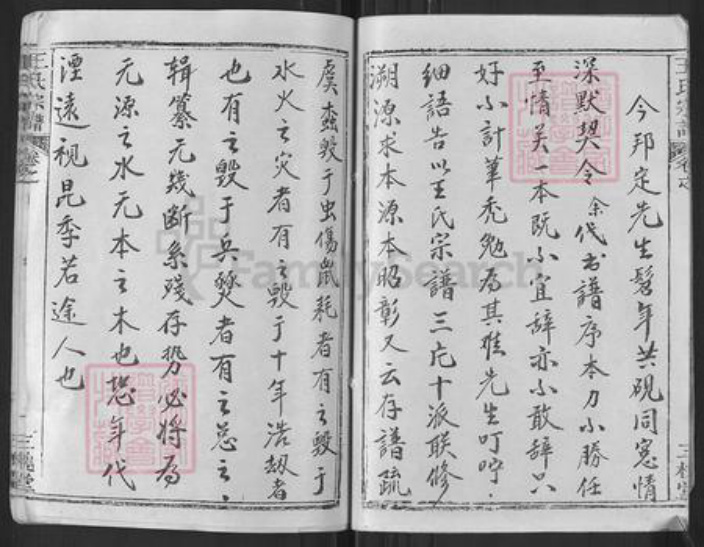 今邦定先生髫年共硯同窓情
深默契令余代书譜序本力小勝任
至情关一本既小宜辞亦小敢辞只
好小計筆禿勉为其难先生叮咛
細語告以王氏宗譜三庀十派联修
溯源求本源本昭彰又云存譜疏
虞蟲毁于虫傷鼠耗者有之毁于
水火之灾者有之毁于十年浩劫者
也有之毁于兵燹者有之总之
辑纂无幾断系残存势必将为
无源之水无本之木也恐年代
湮遠视昆季若途人也
王氏宗譜
三槐堂
FamilySearch